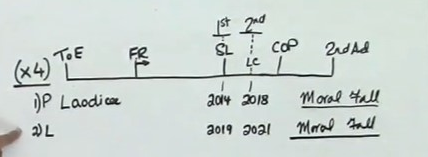 1st 2nd
ToE FR SL LC COP 2ndAd
(x4)
1)P Laodicea 2014 2018 Moral Fall
2)L 2019 2021 Moral Fall